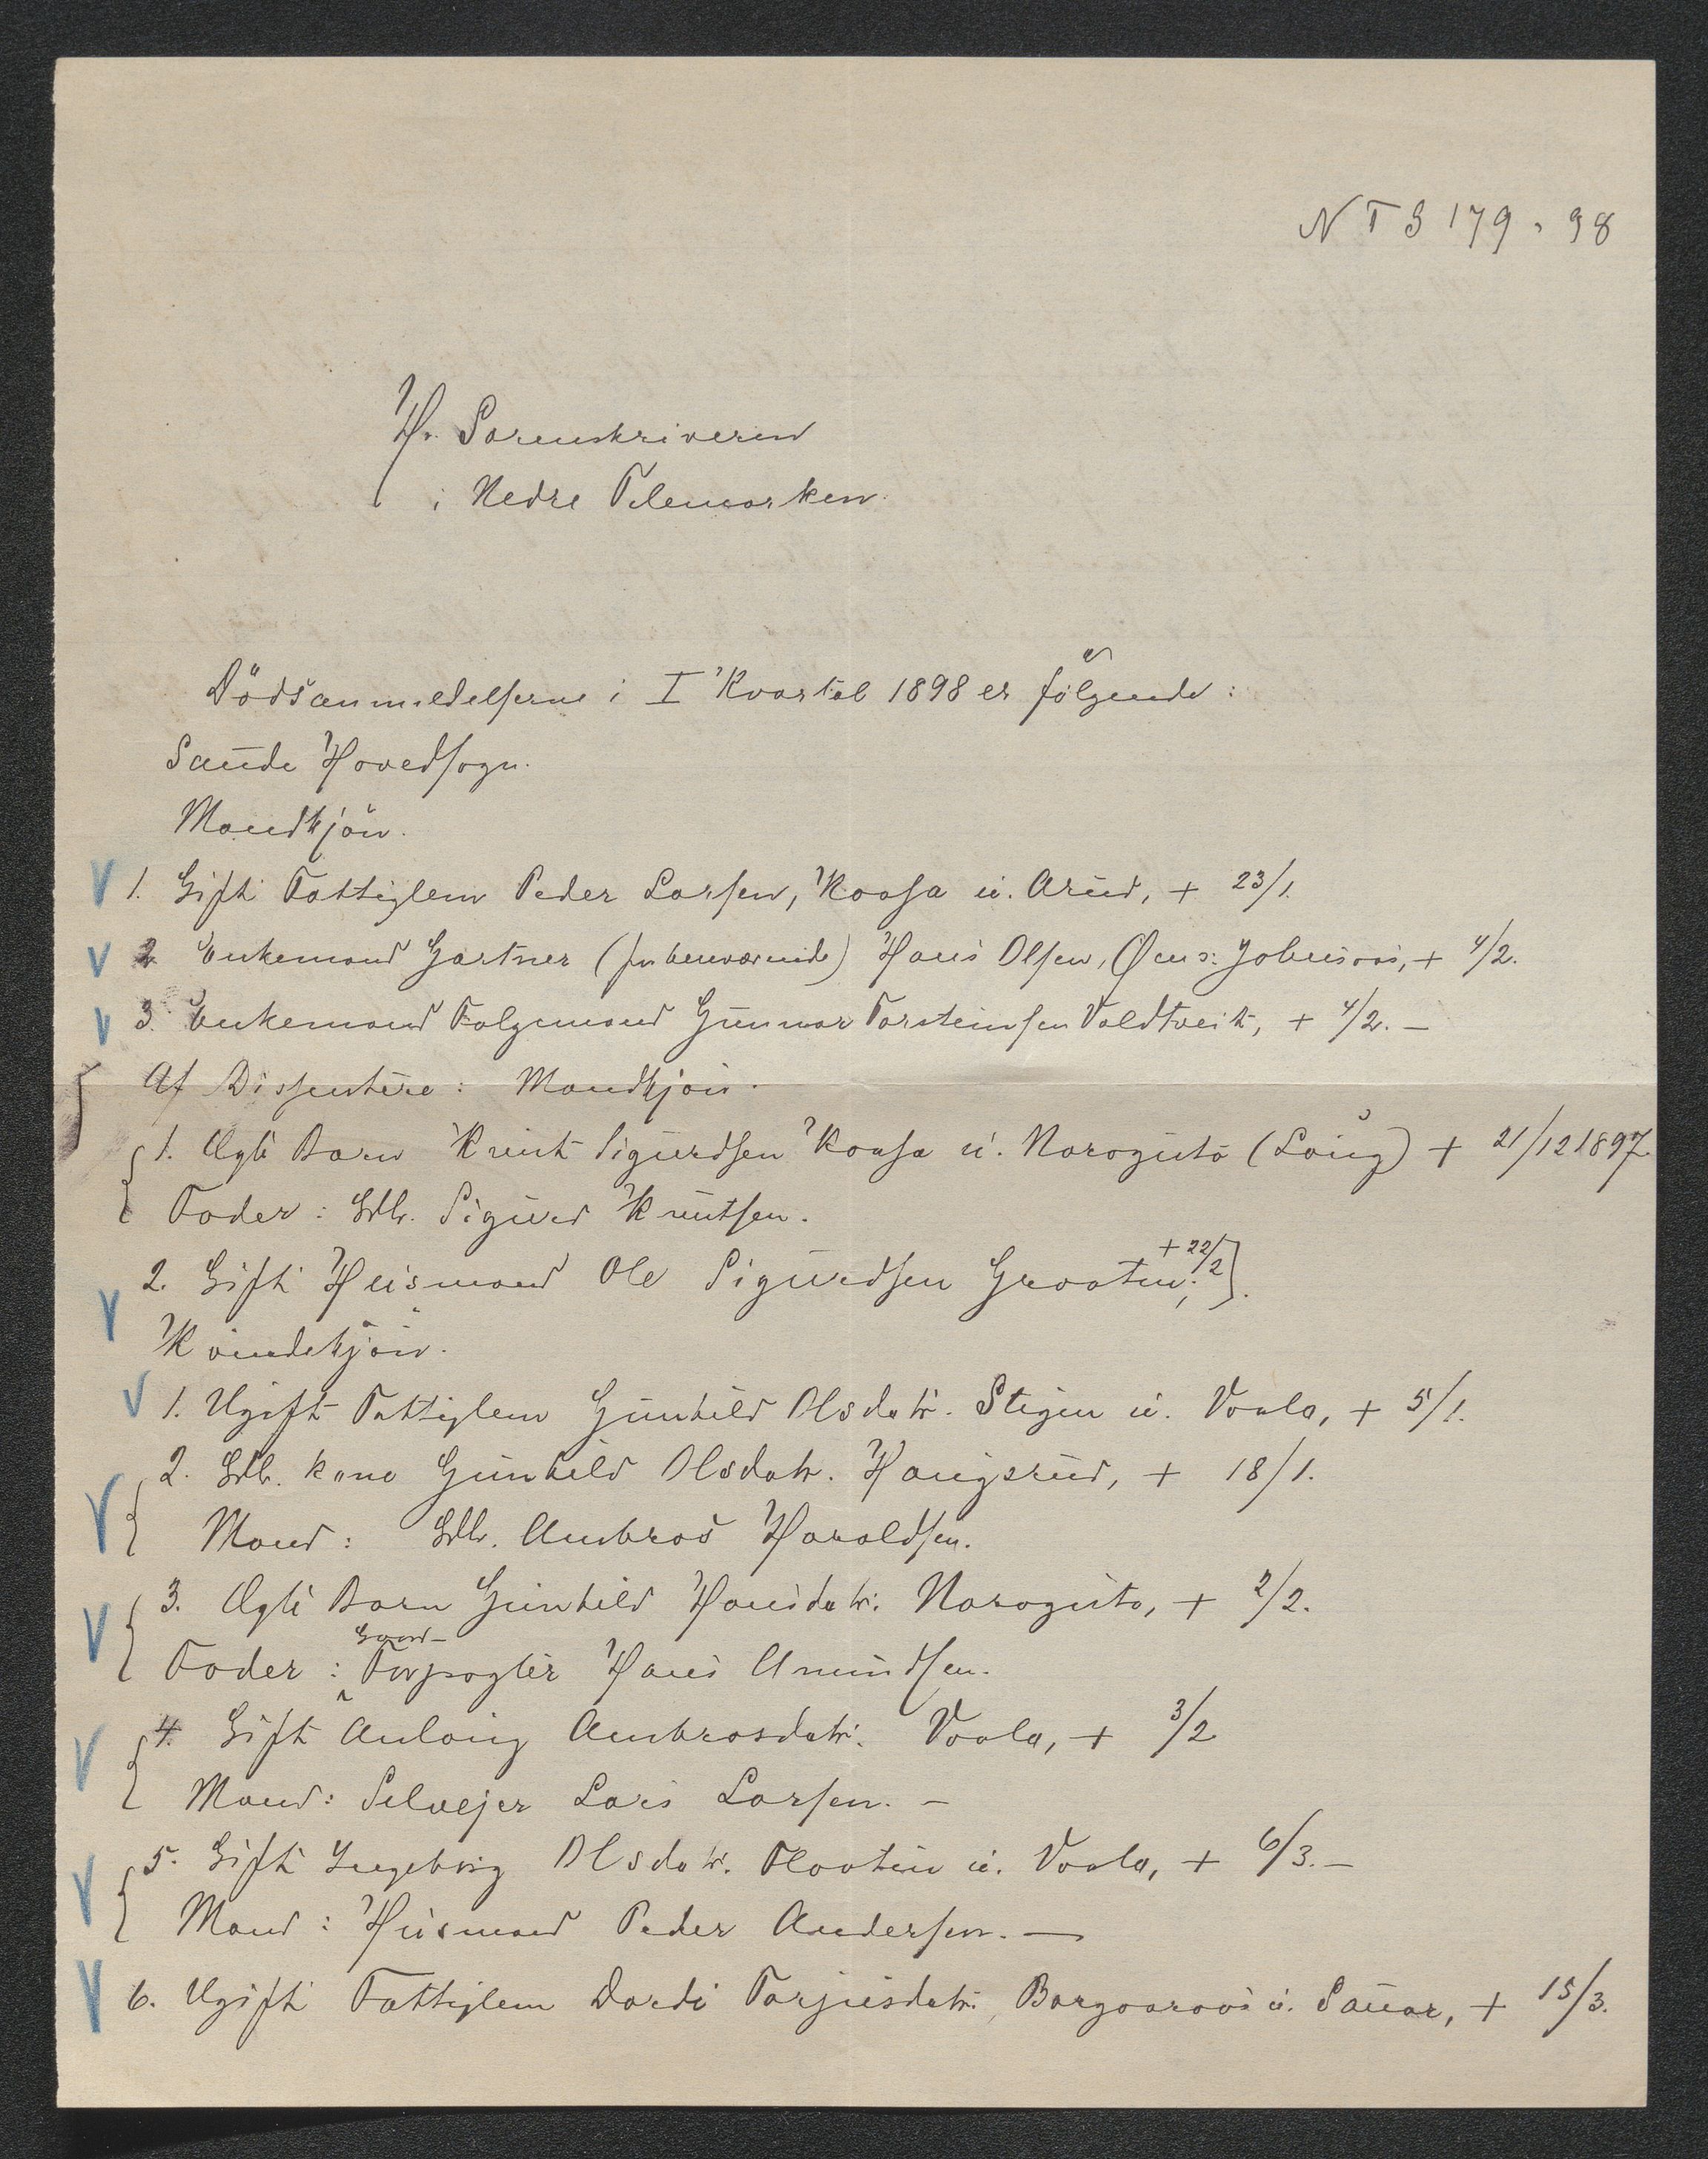 NTS 179. 98
Hr. Sorenskriveren
i Nedre Telemarken.
Dödsanmeldelserne i I Kvartal 1898 er fölgende:
Saude Hovedsogn.
Mandkjön.
1. Gift Fattiglem Peder Larsen, Kaasa u. Arud, + 23/1.
2 Enkemand Gartner Hans Olsen, + 4/2.
3. Enkemand Folgemand Gunnar Torsteinsen Valdtveit, + 4/2. –
Af Dissentere: Mandkjön.
1. Ægte Barn Knut Sigurdsen Kaasa u. Noragutu + 21/12 1897.
Fader: Gdbr. Sigurd Knutsen.
2. Gift Husmand Ole Sigurdsen Graaten, + 22/2].
Kvindekjön.
1. Ugift Fattiglem Gunhild Olsdatr. Stigen u. Vaala, + 5/1.
2. Gdbr. kone Gunhild Olsdatr. Haugsrud, + 18/1.
Mand: Gdbr. Ambros Haraldsen.
3. Ægte Barn Gunhild Hansdatr. Noragutu, + 2/2.
Fader: Gaardforpagter Hans Amundsen.
4. Gift Anlaug Ambrosdatr. Vaala, + 3/2
Mand: Selvejer Lars Larsen. –
5. Gift Ingeborg Olsdatr. Flaatin u. Vaala, + 6/3. –
Mand: Husmand Peder Andersen. —
6. Ugift Fattiglem Dordi Tarjusdatr. u. Sauar, + 15/3.